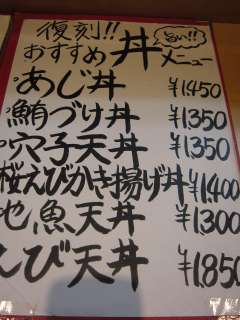 復刻!!
旨い!!
おすすめ丼メニュー
あじ丼 ¥1,450
鮪づけ丼 ¥1,350
穴子天丼 ¥1,350
桜えびかき揚げ丼 ¥1,400
地魚天丼 ¥1,300
えび天丼 ¥1,850